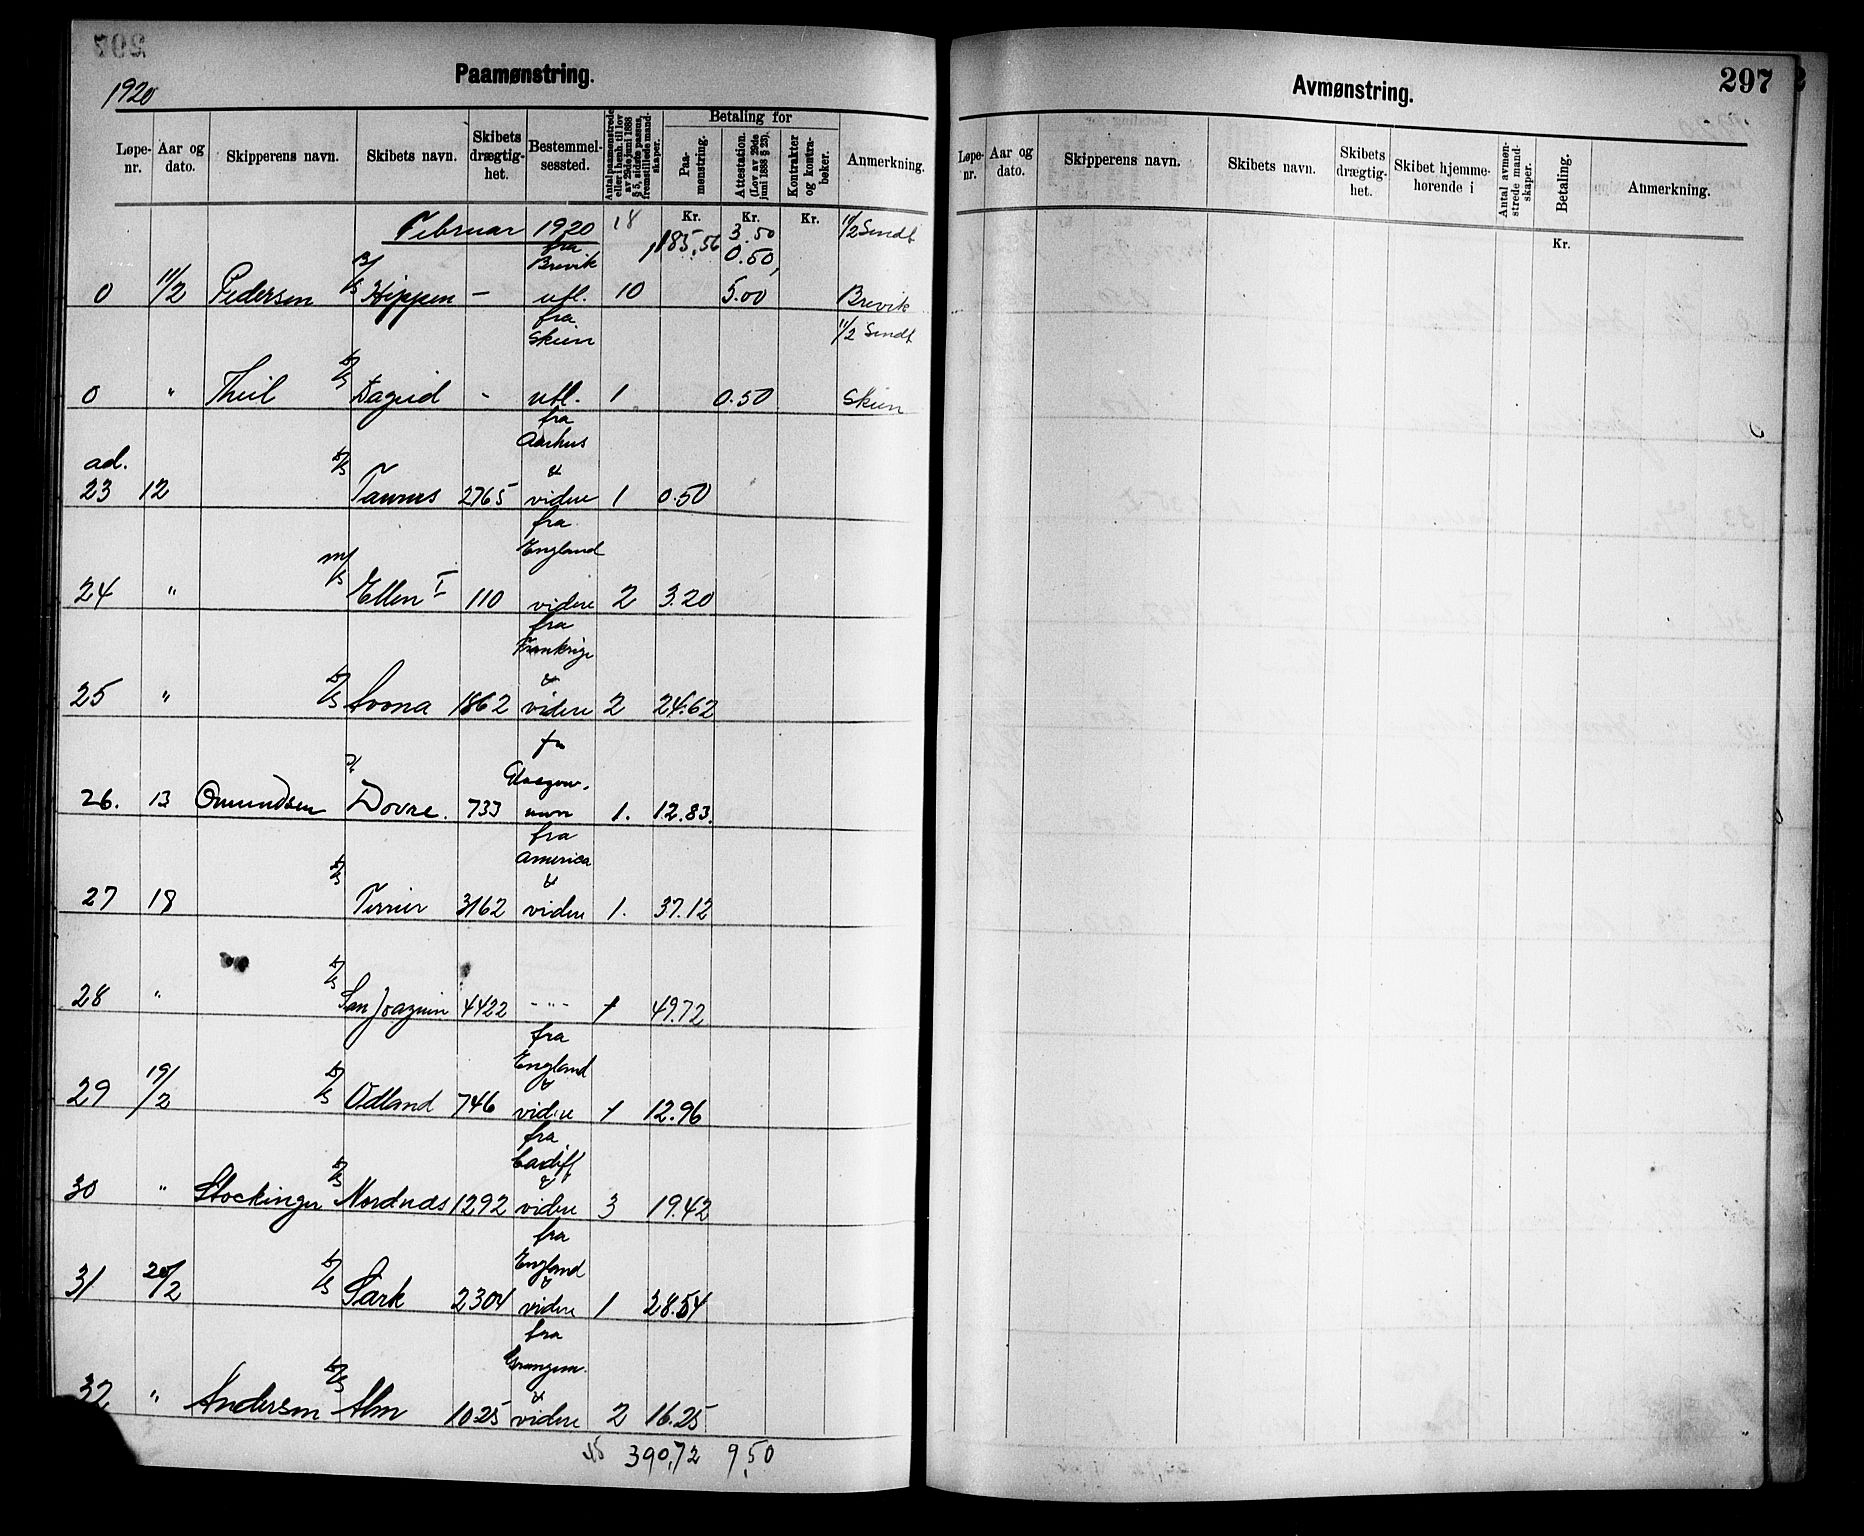 297
1920
Paamønstring.
Løpe-nr.
Aar og dato.
Skipperens navn.
Skibets navn.
Skibets drægtig-het.
Bestemmel-sessted.
Antal paamønstrede eller i henh. til lov av 29de juni 1888 § 5, sidste passus, fremstillede mand-skaper.
Betaling for
Paa-mønstring.
Attestation. (Lov av 29de juni 1888 § 23).
Kontrakter og kontra-bøker.
Anmerkning.
Kr. Kr. Kr.
Februar 1920 18 185,56 3.50 11/2 Sendt
fra Brevik 0.50,
0 11/2 Pedersen Hippen - utl. 10 5.00 Brevik
fra Skien 11/2 Sendt
0 " Theil D/S Dagrid - utl. 1 0.50 Skien
fra Aarhus
ad. D/S &
23 12 Taurus 2765 videre 1 0.50
fra England
M/S
24 " Ellen I 110 videre 2 3.20
fra Frankrige
D/S &
25 " Svona 1862 videre 2 24.62
Glasgow.
26. 13 Omundsen Dovre. 733 1. 12.83.
fra America
D/S &
27 18 Terrier 3162 videre 1. 37.12
D/S
28 " San Joaquin 4422 - " - 1 49.72
fra England
D/S &
29 19/2 Odland 746 videre 1 12.96
fra Cardiff
D/S &
30 " Stockinger Nordnæs 1292 videre 3 19.42
fra England
D/S &
31 20/2 Sark 2304 videre 1 28.54
fra Grangem.
D/S &
32 " Andersen Alm 1025 videre 2 16.25
45 390,72 9,50
Avmønstring.
297
Løpe-nr.
Aar og dato.
Skipperens navn.
Skibets navn.
Skibets drægtig-het.
Skibet hjemme-hørende i
Antal avmøn-strede mand-skaper.
Betaling.
Anmerkning.
Kr.